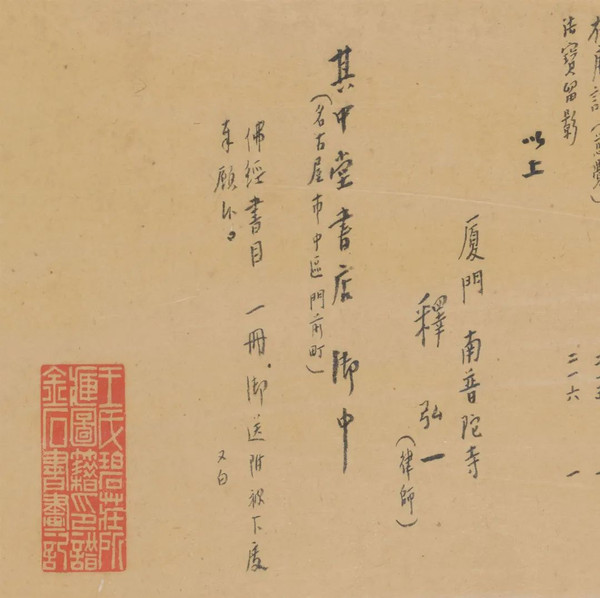 法寶留影 二一六 一
以上
厦門 南普陀寺
釋 弘一
(律師)
其中堂書店 御中
(名古屋市中區門前町)
佛經書目 一冊、御送附被下度
奉願候。 又白
碧莊所
圖籍印譜
金石書畫記